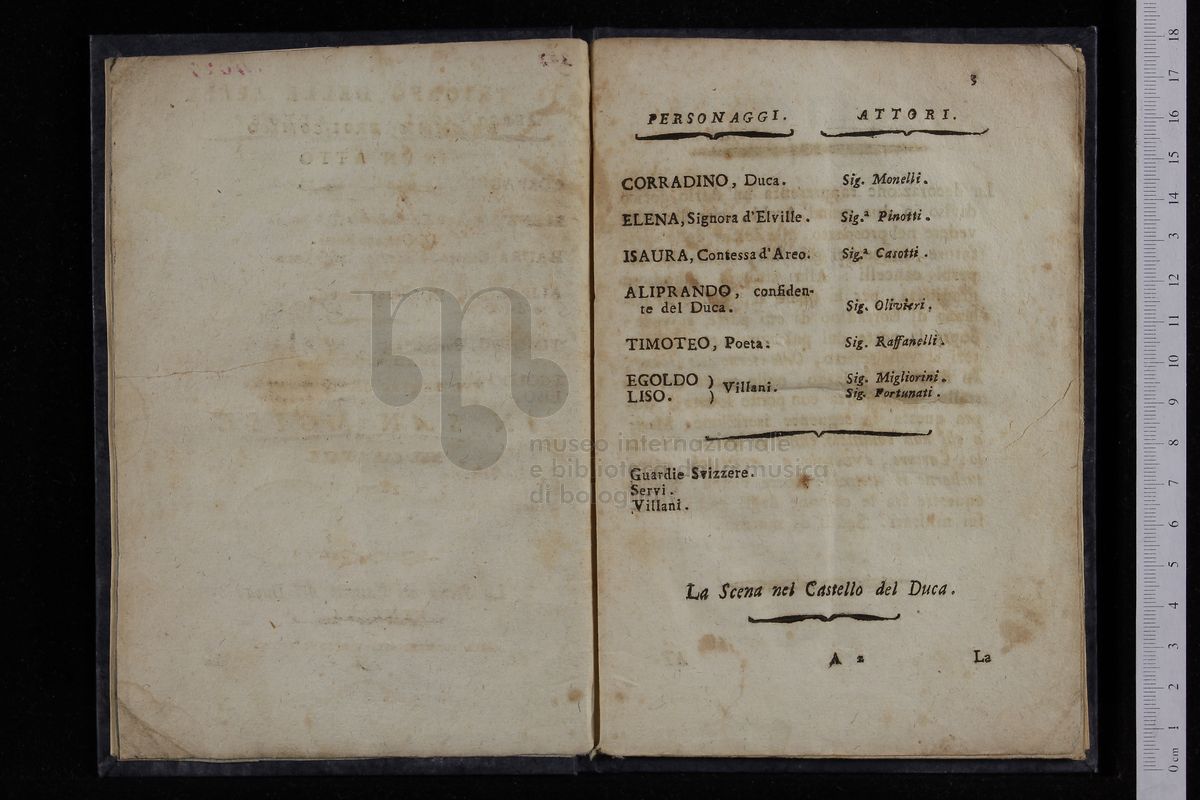 3
PERSONAGGI. ATTORI.
CORRADINO, Duca. Sig. Monelli.
ELENA, Signora d'Elville. Sig.ª Pinotti.
ISAURA, Contessa d'Areo. Sig.ª Casotti.
ALIPRANDO, confiden-
te del Duca. Sig. Olivieri.
TIMOTEO, Poeta. Sig. Raffanelli.
EGOLDO ) Villani. Sig. Migliorini.
LISO. ) Sig. Fortunati.
Guardie Svizzere.
Servi.
Villani.
La Scena nel Castello del Duca.
A 2 La
museo internazionale
e biblioteca della musica
di bologna
0 cm 1 2 3 4 5 6 7 8 9 10 11 12 13 14 15 16 17 18